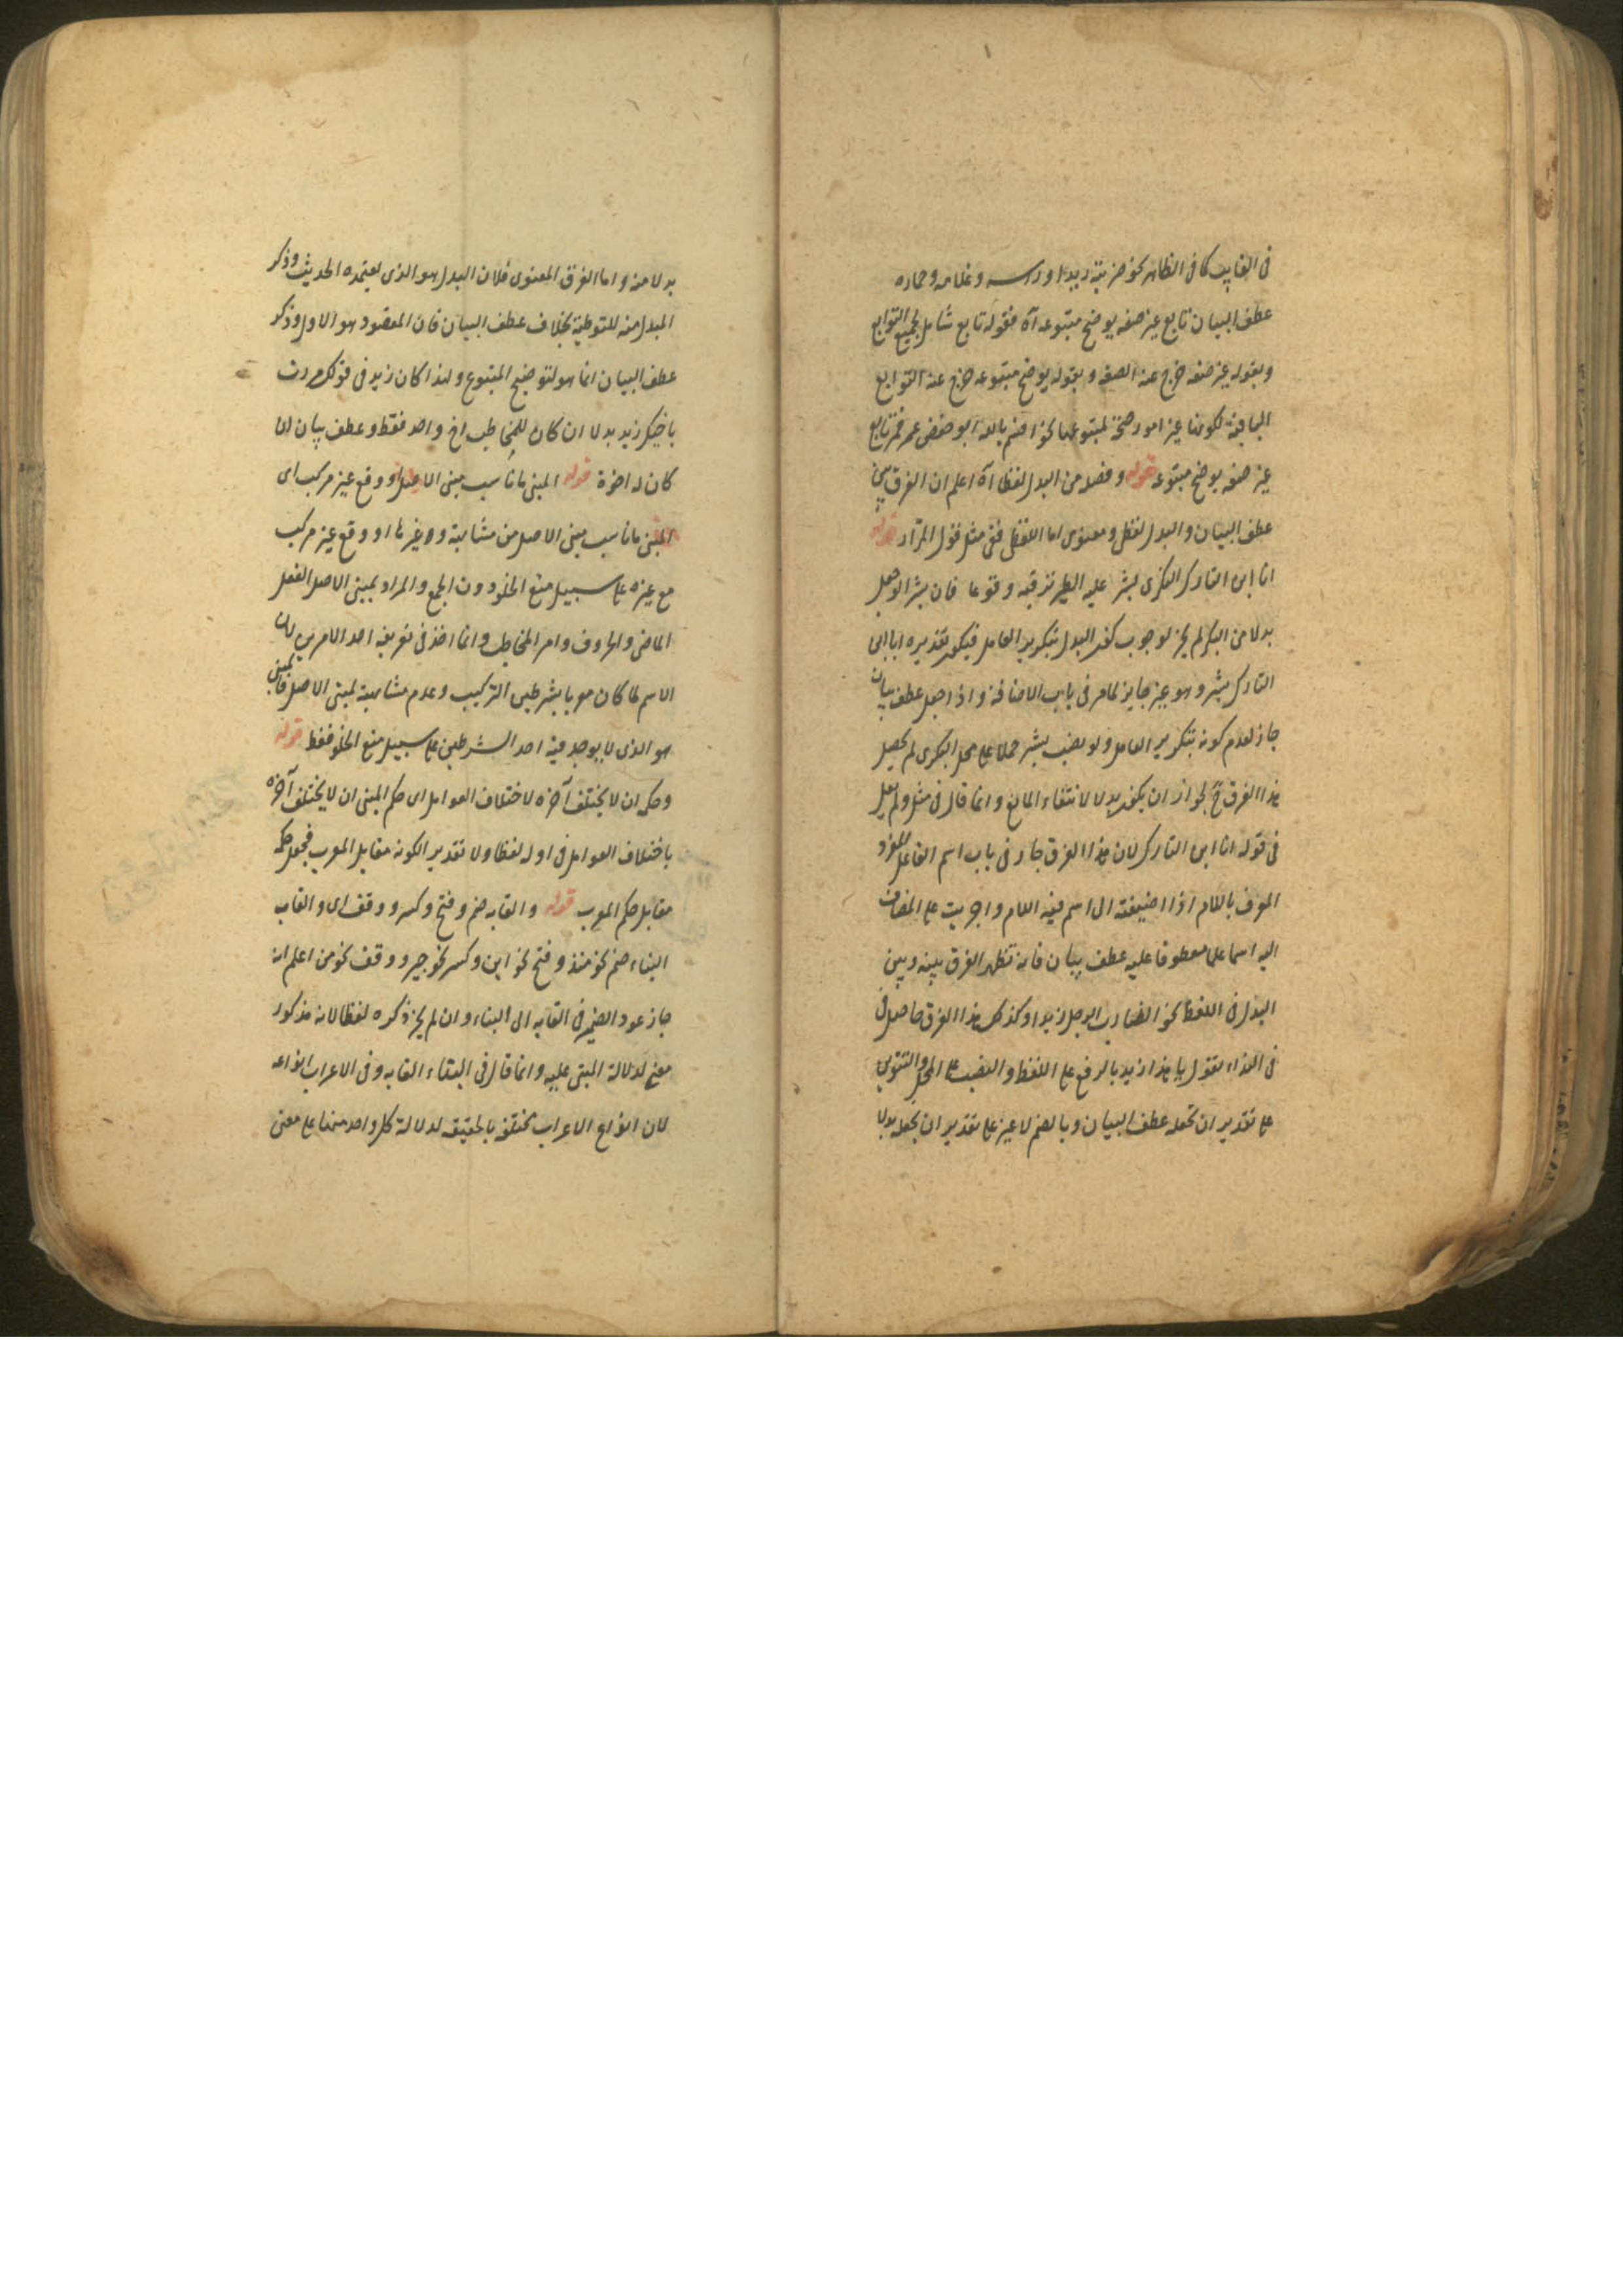 في الغايب كما في الظاهر نحو ضربته زيدا و راسه وغلامه وحماره
عطف البيان تابع غير صفه يوضح متبوعه آه فقوله تابع شامل لجميع التوابع
وبقوله غير صفه خرج عنه الصفه وبقوله يوضح متبوعه خرج عنه التوابع
الباقية لكونها غير موضحة لمتبوعها نحو اقسم بالله ابو حفص عمر فعمر تابع
غير صفه يوضح متبوعه قوله وفصله من البدل لفظا آه اعلم ان الفرق بين
عطف البيان والبدل لفظي ومعنوي اما اللفظي ففي مثل قول المرار قوله
انا ابن التارك البكري بشر عليه الطير ترقبه وقوعا فان بشرا لو جعل
بدلا من البكري لم يجز لوجوب كون البدل بتكرير العامل فيكون تقديره انا ابن
التارك بشر وهو غير جايز لما مر في باب الاضافة واذا جعل عطف بيان
جاز لعدم كونه بتكرير العامل ولو نصب بشر حملا على محل البكري لم يحصل
هذا الفرق ح لجواز ان يكون بدلا لانتفاء المانع وانما قال في مثل ولم يقل
في قوله انا ابن التارك لان هذا الفرق جار في باب اسم الفاعل المفرد
المعرف باللام اذا اضيفته الى اسم فيه اللام واجريت على المضاف
اليه اسما علما معطوفا عليه عطف بيان فانه تظهر الفرق بينه وبين
البدل في اللفظ نحو الضارب الرجل زيدا وكذلك هذا الفرق حاصل في
في النداء تقول يا هذا زيد بالرفع على اللفظ والنصب على المحل والتنوين
على تقدير ان تجعله عطف البيان وبالضم لا غير على تقدير ان تجعله بدلا
بدلا منه واما الفرق المعنوي فلان البدل هو الذي يعتمده الحديث وذكر
المبدل منه للتوطية بخلاف عطف البيان فان المقصود هو الاول وذكر
عطف البيان انما هو لتوضيح المتبوع ولهذا كان زيد في قولك مررت
باخيك زيد بدلا ان كان للمخاطب اخ واحد فقط وعطف بيان ان
كان له اخوة قوله المبني ما ناسب مبني الاصل او وقع غير مركب اى
المبني ما ناسب مبني الاصل من مشابهة وغيرها او وقع غير مركب
مع غيره على سبيل منع الخلو دون الجمع والمراد بمبني الاصل الفعل
الماضي والحروف وامر المخاطب وانما اخذ في تعريفه احد الامرين لان
الاسم لما كان معربا بشرطين التركيب وعدم مشابهة لمبني الاصل فالمبني
هو الذي لا يوجد فيه احد الشرطين على سبيل منع الخلو فقط قوله
وحكمه ان لا يختلف آخره لاختلاف العوامل اى حكم المبني ان لا يختلف آخره
باختلاف العوامل في اوله لفظا ولا تقديرا لكونه مقابل المعرب فجعل حكمه
مقابل حكم المعرب قوله والقابه ضم وفتح وكسر ووقف اى والقاب
البناء ضم نحو منذ وفتح نحو اين وكسر نحو جير ووقف نحو من اعلم انه
جاز عود الضمير في القابه الى البناء وان لم يجز ذكره لفظا لانه مذكور
معنى لدلالة المبني عليه وانما قال في البناء القابه وفي الاعراب انواعه
لان انواع الاعراب مختلفة بالحقيقه لدلالة كل واحد منها على معنى